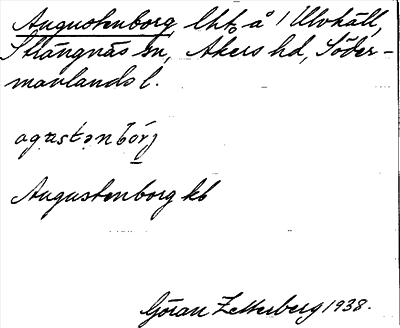 Augustenborg, lht å 1 Ulvhäll,
Strängnäs sn, Åkers hd, Söder-
manlands l.
agɐstənbórj
Augustenborg kb
Göran Zetterberg 1938.